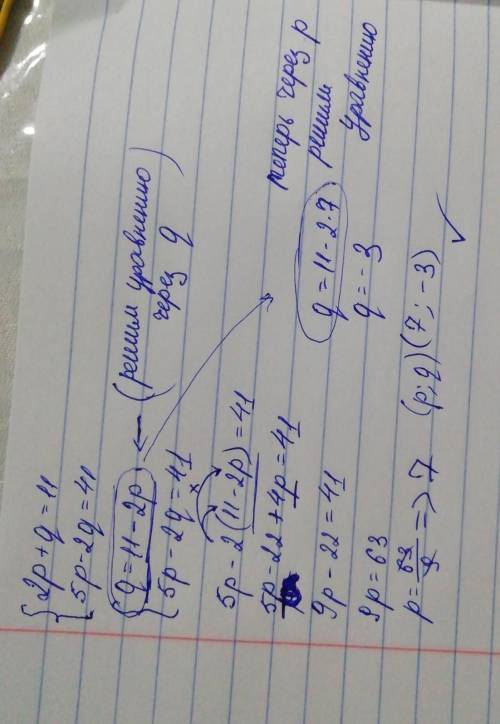 {2p+q=11
{5p-2q=41
{q=11-2p ← (решим уравнению
через q)
{5p-2q=41
5p-2(11-2p)=41
5p-22+4p=41
9p-22=41
9p=63
p=63/9=>7
теперь через p
решим
уравнению
q=11-2·7
q=-3
(p;q)(7;-3)
✓